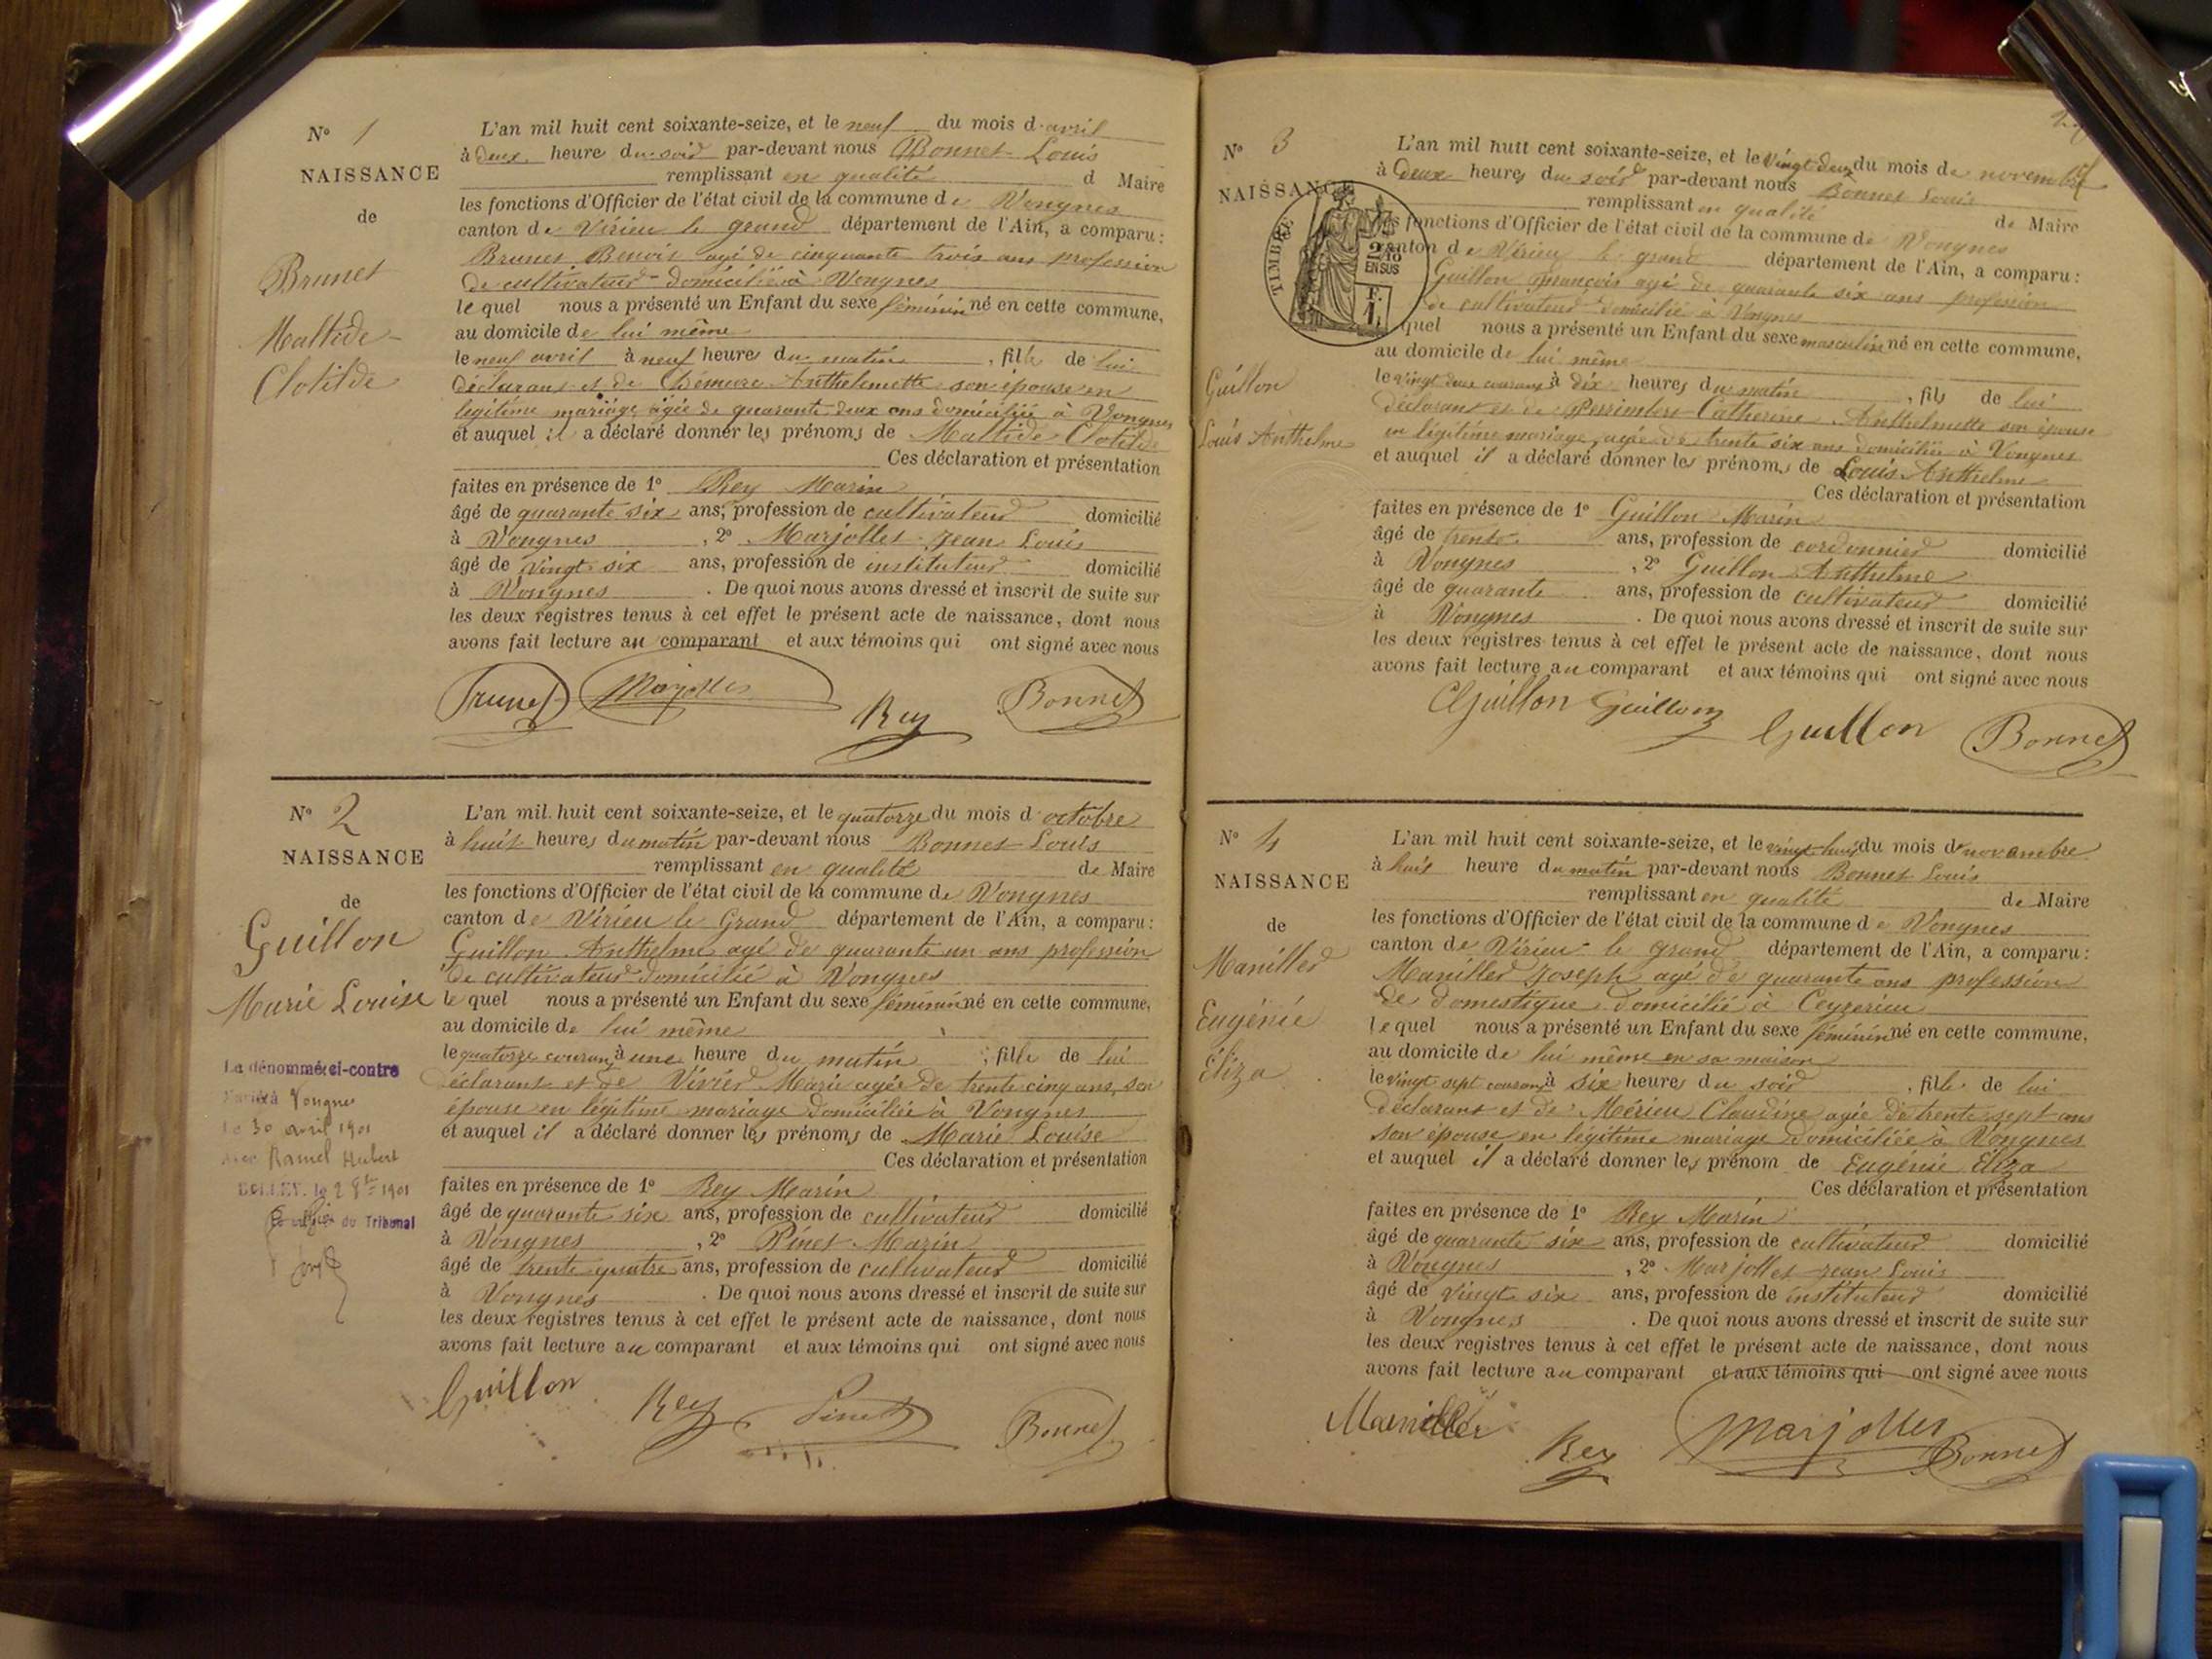 N° 1
NAISSANCE
de
Brunet
Maltide
Clotilde
L'an mil huit cent soixante-seize, et le neuf du mois d'avril
à deux heure du soir par-devant nous Bonnet Louis
remplissant en qualité d Maire
les fonctions d'Officier de l'état civil de la commune de Vongnes
canton de Virieu le grand département de l'Ain, a comparu:
Brunet Benoit agé de cinquante trois ans profession
de cultivateur domicilié à Vongnes
le quel nous a présenté un Enfant du sexe féminin né en cette commune,
au domicile de lui même
le neuf avril à neuf heures du matin, fille de lui
déclarant et de Anthelmette son épouse en
legitime mariage agée de quarante deux ans domiciliée à Vongnes
et auquel il a déclaré donner les prénoms de Maltide Clotilde
Ces déclaration et présentation
faites en présence de 1° Rey Marin
âgé de quarante six ans, profession de cultivateur domicilié
à Vongnes, 2° Marjollet Jean Louis
âgé de vingt six ans, profession de instituteur domicilié
à Vongnes. De quoi nous avons dressé et inscrit de suite sur
les deux registres tenus à cet effet le présent acte de naissance, dont nous
avons fait lecture au comparant et aux témoins qui ont signé avec nous
Brunet Marjollet Rey Bonnet
N° 2
NAISSANCE
de
Guillon
Marie Louise
La dénommée ci-contre
Mariée à Vongnes
le 30 avril 1901
avec Ramel Hubert
BELLEY, le 2 8bre 1901
du Tribunal
L'an mil huit cent soixante-seize, et le quatorze du mois d'octobre
à huit heures du matin par-devant nous Bonnet Louis
remplissant en qualité de Maire
les fonctions d'Officier de l'état civil de la commune de Vongnes
canton de Virieu le Grand département de l'Ain, a comparu:
Guillon Anthelme agé de quarante un ans profession
de cultivateur domicilié à Vongnes
le quel nous a présenté un Enfant du sexe féminin né en cette commune,
au domicile de lui même
le quatorze courant à une heure du matin, fille de lui
déclarant et de Vivier Marie agée de trente cinq ans, son
épouse en légitime mariage domiciliée à Vongnes
et auquel il a déclaré donner les prénoms de Marie Louise
Ces déclaration et présentation
faites en présence de 1° Rey Marin
âgé de quarante six ans, profession de cultivateur domicilié
à Vongnes, 2° Pinet Marin
âgé de trente quatre ans, profession de cultivateur domicilié
à Vongnes. De quoi nous avons dressé et inscrit de suite sur
les deux registres tenus à cet effet le présent acte de naissance, dont nous
avons fait lecture au comparant et aux témoins qui ont signé avec nous
Guillon Rey Pinet Bonnet
N° 3
NAISSANCE
TIMBRE
2/10
EN SUS
Guillon
Louis Anthelme
L'an mil huit cent soixante-seize, et le vingt deux du mois de novembre
à deux heures du soir par-devant nous Bonnet Louis
remplissant en qualité de Maire
les fonctions d'Officier de l'état civil de la commune de Vongnes
canton de Virieu le grand département de l'Ain, a comparu:
Guillon François agé de quarante six ans profession
de cultivateur domicilié à Vongnes
quel nous a présenté un Enfant du sexe masculin né en cette commune,
au domicile de lui même
le vingt deux courant à dix heures du matin, fils de lui
déclarant et de Catherine Anthelmette son épouse
en légitime mariage, agée de trente six ans domiciliée à Vongnes
et auquel il a déclaré donner les prénoms de Louis Anthelme
Ces déclaration et présentation
faites en présence de 1° Guillon Marin
âgé de trente ans, profession de cordonnier domicilié
à Vongnes, 2° Guillon Anthelme
âgé de quarante ans, profession de cultivateur domicilié
à Vongnes. De quoi nous avons dressé et inscrit de suite sur
les deux registres tenus à cet effet le présent acte de naissance, dont nous
avons fait lecture au comparant et aux témoins qui ont signé avec nous
Guillon Guillon Guillon Bonnet
N° 4
NAISSANCE
de
Manillier
Eugénie
Eliza
L'an mil huit cent soixante-seize, et le vingt-huit du mois de novembre
à huit heure du matin par-devant nous Bonnet Louis
remplissant en qualité de Maire
les fonctions d'Officier de l'état civil de la commune de Vongnes
canton de Virieu le grand département de l'Ain, a comparu:
Manillier Joseph agé de quarante ans profession
de domestique domicilié à Ceyzerieu
le quel nous a présenté un Enfant du sexe féminin né en cette commune,
au domicile de lui même en sa maison
le vingt sept courant à six heures du soir, fille de lui
déclarant et de Mérieu Claudine agée de trente sept ans
son épouse en légitime mariage domiciliée à Vongnes
et auquel il a déclaré donner les prénom de Eugénie Eliza
Ces déclaration et présentation
faites en présence de 1° Rey Marin
âgé de quarante six ans, profession de cultivateur domicilié
à Vongnes, 2° Marjollet Jean Louis
âgé de vingt six ans, profession de instituteur domicilié
à Vongnes. De quoi nous avons dressé et inscrit de suite sur
les deux registres tenus à cet effet le présent acte de naissance, dont nous
avons fait lecture au comparant et aux témoins qui ont signé avec nous
Manillier Rey Marjollet Bonnet